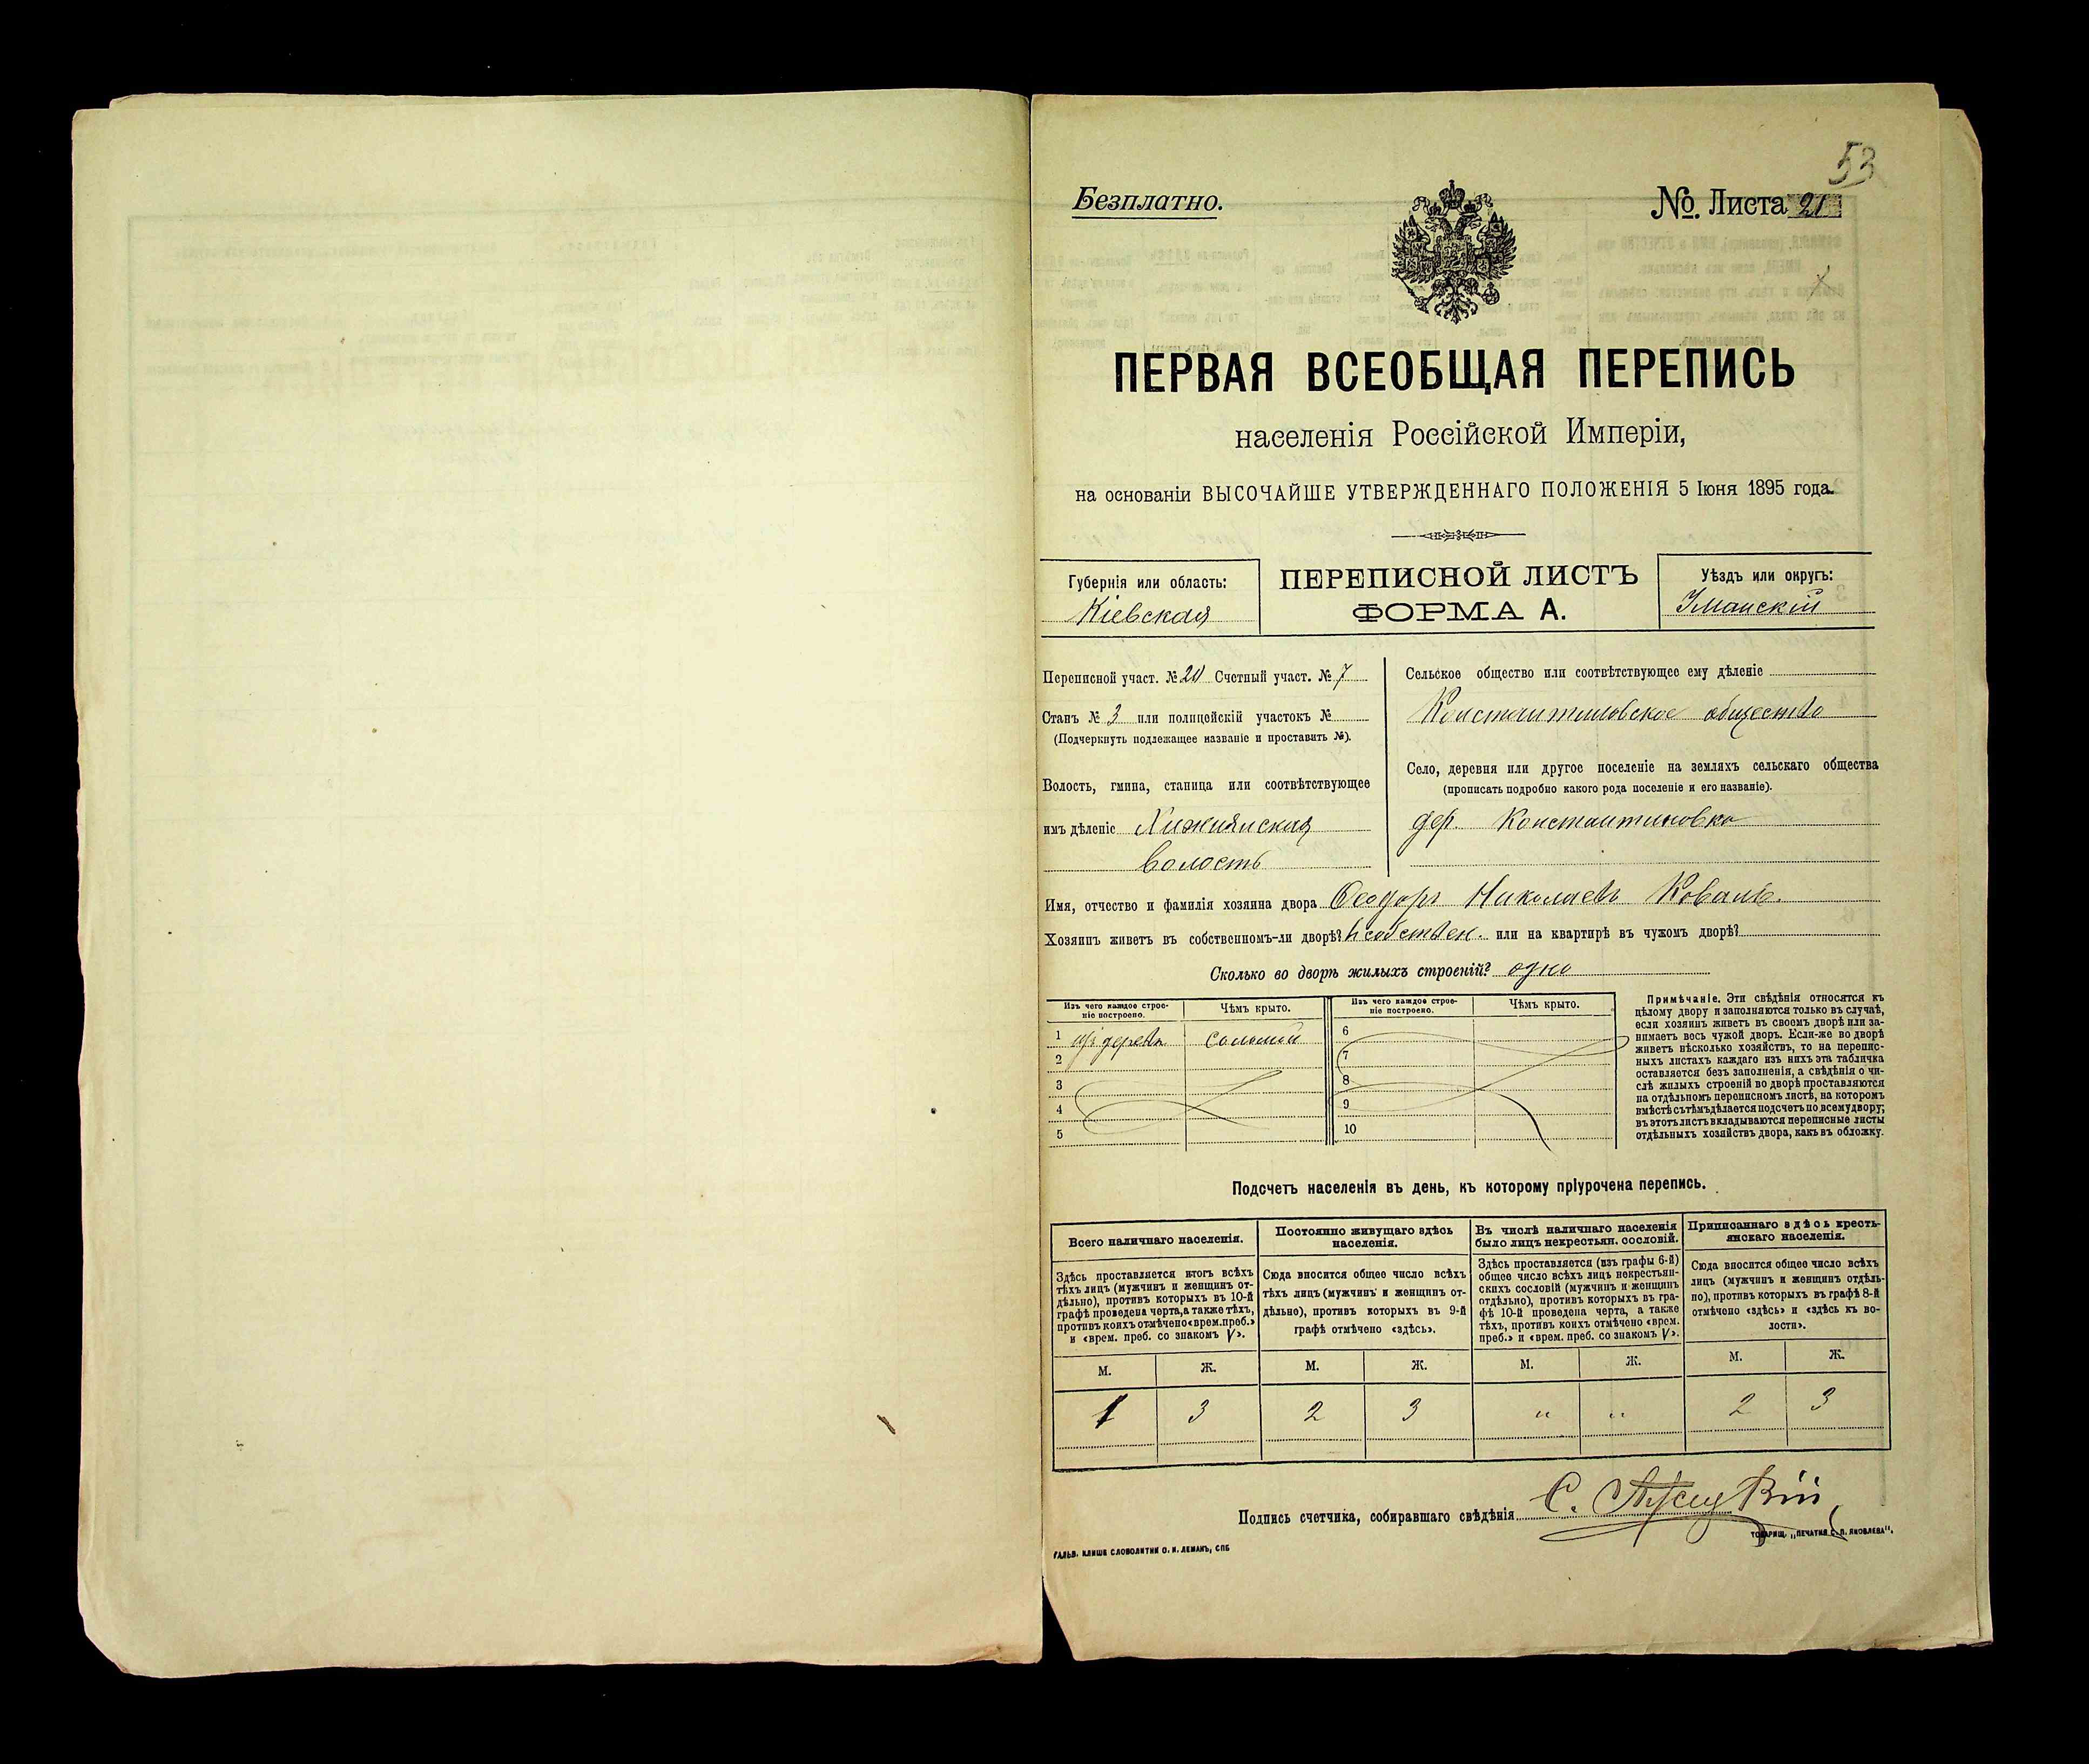 53
Безплатно.
№. Листа 21
ПЕРВАЯ ВСЕОБЩАЯ ПЕРЕПИСЬ
населенія Россійской Имперіи,
на основаніи ВЫСОЧАЙШЕ УТВЕРЖДЕННАГО ПОЛОЖЕНІЯ 5 Іюня 1895 года.
Губернія или область:
Кіевская
ПЕРЕПИСНОЙ ЛИСТЪ
ФОРМА А.
Уѣздъ или округъ:
Уманскій
Переписной участ. № 20 Счетный участ. № 7
Станъ № 3 или полицейскій участокъ №
(Подчеркнуть подлежащее названіе и проставить №).
Волость, гмина, станица или соотвѣтствующее
имъ дѣленіе Хижнянская
волость
Сельское общество или соотвѣтствующее ему дѣленіе
Константиновское общество
Село, деревня или другое поселеніе на земляхъ сельскаго общества
(прописать подробно какого рода поселеніе и его названіе).
дер. Константиновка
Имя, отчество и фамилія хозяина двора Ѳеодоръ Николаевъ Коваль.
Хозяинъ живетъ въ собственномъ-ли дворѣ? въ собствен. или на квартирѣ въ чужомъ дворѣ?
Сколько во дворѣ жилыхъ строеній? одно
Изъ чего каждое строе-
ніе построено.
Чѣмъ крыто.
Изъ чего каждое строе-
ніе построено.
Чѣмъ крыто.
1 изъ дерева соломой
2
3
4
5
6
7
8
9
10
Примѣчаніе. Эти свѣдѣнія относятся къ
цѣлому двору и заполняются только въ случаѣ,
если хозяинъ живетъ въ своемъ дворѣ или за-
нимаетъ весь чужой дворъ. Если-же во дворѣ
живетъ нѣсколько хозяйствъ, то на перепис-
ныхъ листахъ каждаго изъ нихъ эта табличка
оставляется безъ заполненія, а свѣдѣнія о чи-
слѣ жилыхъ строеній во дворѣ проставляются
на отдѣльномъ переписномъ листѣ, на которомъ
вмѣстѣ съ тѣмъ дѣлается подсчетъ по всему двору;
въ этотъ листъ вкладываются переписные листы
отдѣльныхъ хозяйствъ двора, какъ въ обложку.
Подсчетъ населенія въ день, къ которому пріурочена перепись.
Всего наличнаго населенія.
Здѣсь проставляется итогъ всѣхъ
тѣхъ лицъ (мужчинъ и женщинъ от-
дѣльно), противъ которыхъ въ 10-й
графѣ проведена черта, а также тѣхъ,
противъ коихъ отмѣчено «врем. преб.»
и «врем. преб. со знакомъ V».
Постоянно живущаго здѣсь
населенія.
Сюда вносится общее число всѣхъ
тѣхъ лицъ (мужчинъ и женщинъ от-
дѣльно), противъ которыхъ въ 9-й
графѣ отмѣчено «здѣсь».
Въ числѣ наличнаго населенія
было лицъ некрестьян. сословій.
Здѣсь проставляется (изъ графы 6-й)
общее число всѣхъ лицъ некрестьян-
скихъ сословій (мужчинъ и женщинъ
отдѣльно), противъ которыхъ въ гра-
фѣ 10-й проведена черта, а также
тѣхъ, противъ коихъ отмѣчено «врем.
преб.» и «врем. преб. со знакомъ V».
Приписаннаго здѣсь кресть-
янскаго населенія.
Сюда вносится общее число всѣхъ
лицъ (мужчинъ и женщинъ отдѣль-
но), противъ которыхъ въ графѣ 8-й
отмѣчено «здѣсь» и «здѣсь къ во-
лости».
М. Ж. М. Ж. М. Ж. М. Ж.
1 3 2 3 „ „ 2 3
Подпись счетчика, собиравшаго свѣдѣнія С.
ГАЛЬВ. КЛИШЕ СЛОВОЛИТНИ О. И. ЛЕМАНЪ, СПБ
ТОВАРИЩ. „ПЕЧАТНЯ С. П. ЯКОВЛЕВА".